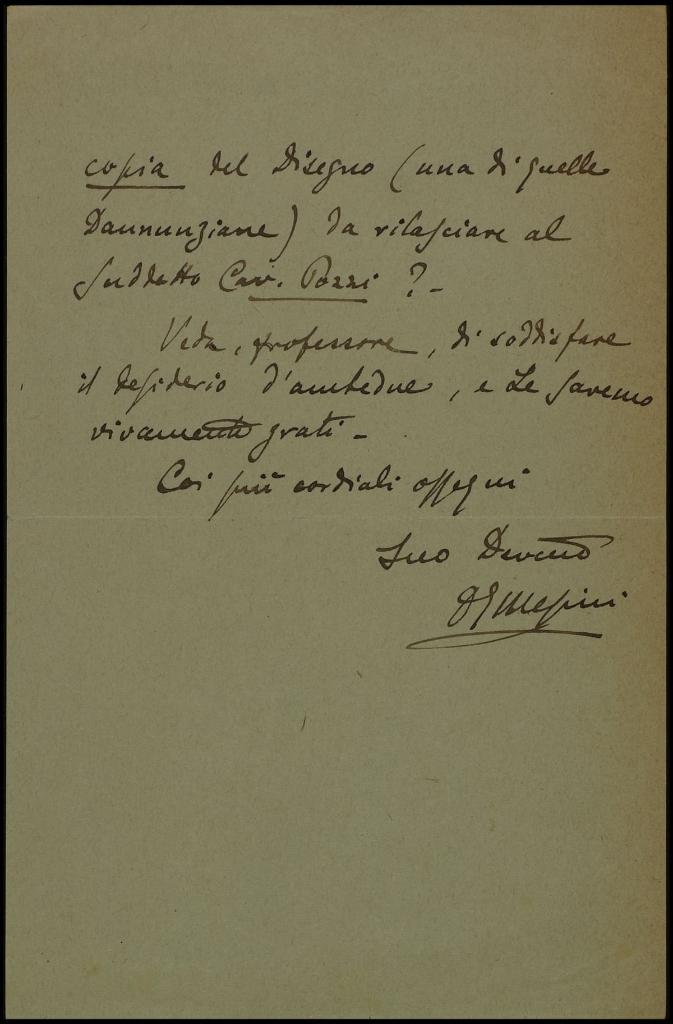 copia del Disegno (una di quelle
Dannunziane) da rilasciare al
suddetto Cav. Pozzi ? -
Veda, professore, di soddisfare
il desiderio d'ambedue, e Le saremo
vivamente grati -
Coi più cordiali ossequi
Suo Devmo